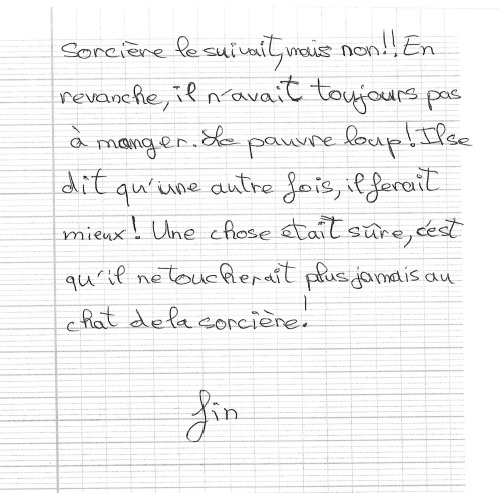 sorcière le suivait, mais non!! En
revanche, il n'avait toujours pas
à manger. Le pauvre loup! Il se
dit qu'une autre fois, il ferait
mieux! Une chose était sûre, c'est
qu'il ne toucherait plus jamais au
chat de la sorcière!
fin